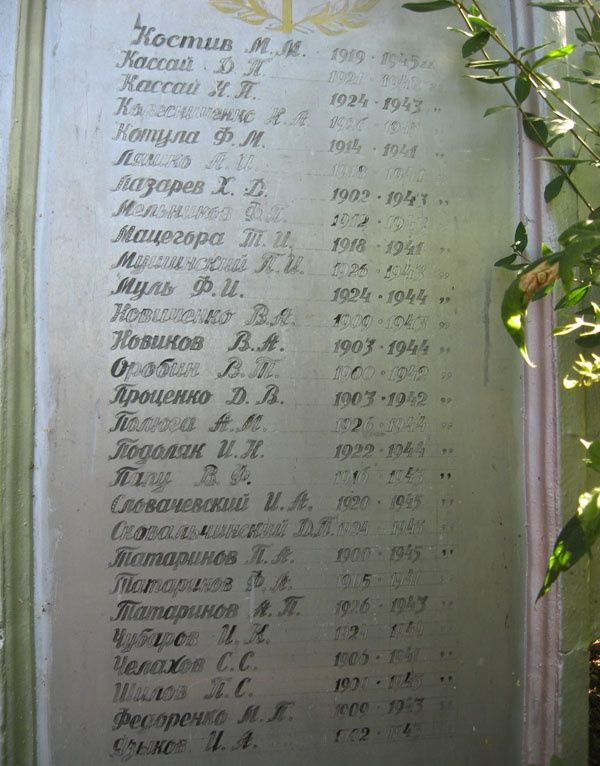 Костив М.М. 1919 · 1945 „
Кассай Д.П. 1921 · 1942 „
Кассай Н.П. 1924 · 1943 „
Колесниченко 1926
Котула Ф.М. 1914 · 1941 „
Ляшко А.И. 1918
Лазарев Х.Д. 1902 · 1943 „
Мельников Ф.П. 1912
Мацегора Т.И. 1918 · 1941 „
Мушинский П.И. 1926 · 1943 „
Муль Ф.И. 1924 · 1944 „
Новиченко В.А. 1909 · 1943 „
Новиков В.А. 1903 · 1944 „
Оробин В.Т. 1900 · 1942 „
Проценко Д.В. 1903 · 1942 „
Полюга А.М. 1926 · 1944 „
Подоляк И.Н. 1922 · 1944 „
Папу В.Ф. 1916 · 1943 „
Словачевский И.А. 1920 · 1945 „
Сковальчинский Д.П. 1924 · 1943 „
Татаринов П.А. 1900 · 1945 „
Татаринов Ф.А. 1905 · 1941
Татаринов А.П. 1926 · 1943 „
Чубаров И.Н. 1924 · 1944
Челахов С.С. 1906 · 1941 „
Шилов П.С. 1943 „
Федоренко М.П. 1909 · 1943 „
Языков И.А. 1902 · 1943 „